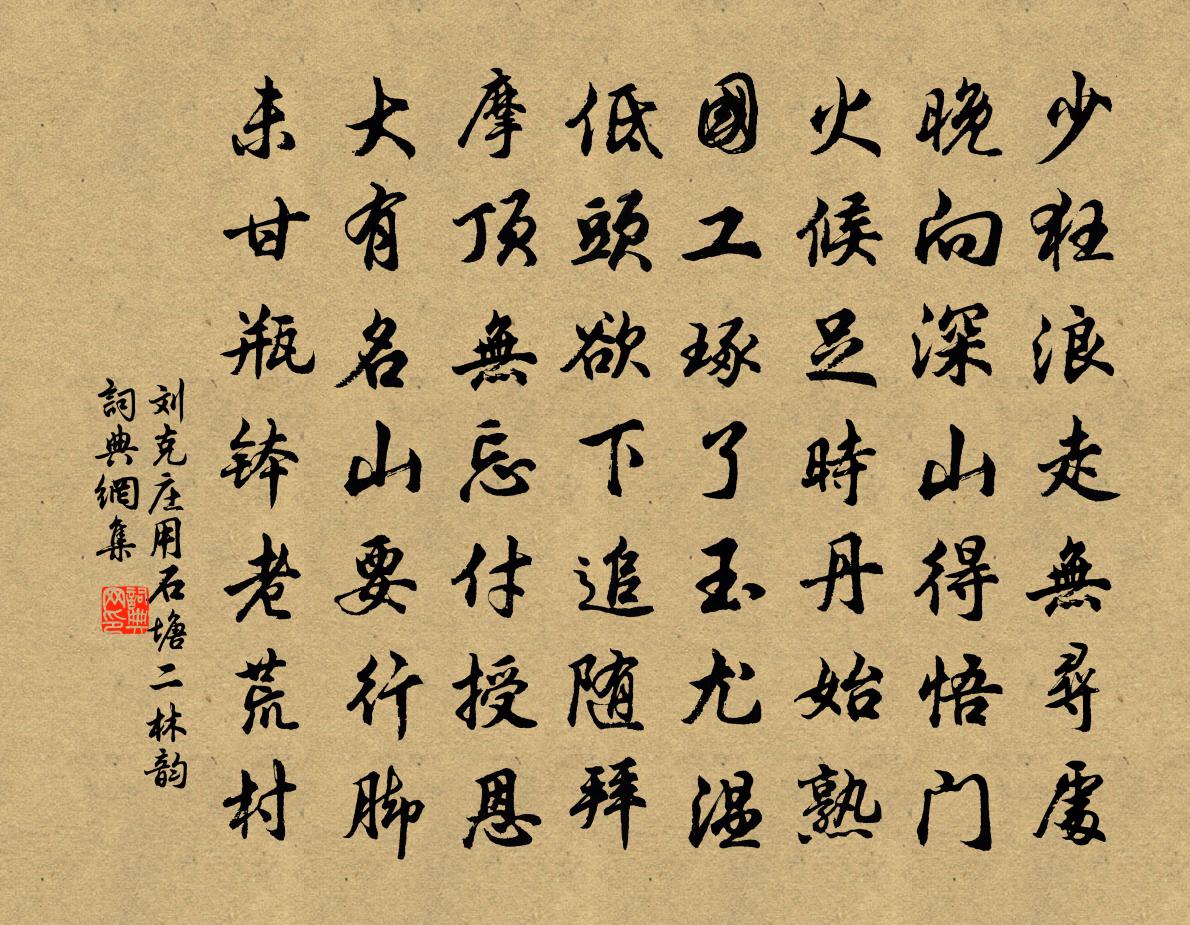 少狂浪走無尋處
晚向深山得悟门
火候足時丹始熟
國工琢了玉尤温
低頭欲下追随拜
摩頂無忘付授恩
大有名山要行脚
未甘瓶钵老荒村
刘克庄用石塘二林韵
詞典網集
詞典网印